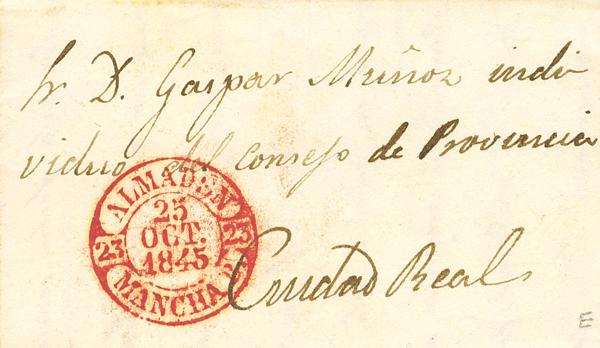 Sr. D. Gaspar Muñoz indi
viduo del Consejo de Provincia
Ciudad Real
ALMADEN
23
25
OCT.
1845
23
MANCHA
E